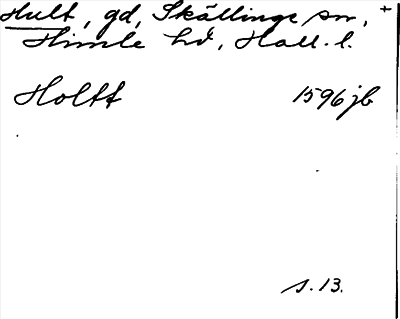 Hult, gd, Skällinge sn, +
Himle hd, Hall. l.
Holtt 1596 jb
s. 13.